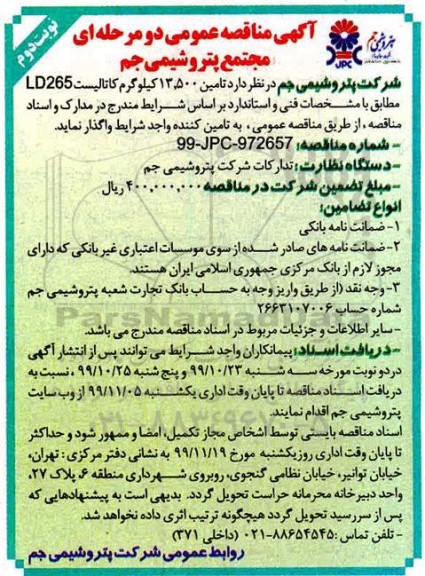 نوبت دوم
آگهی مناقصه عمومی دو مرحله ای
مجتمع پتروشیمی جم
پتروشیمی جم
JPC
شرکت پتروشیمی جم در نظر دارد تامین ۱۳,۵۰۰ کیلوگرم کاتالیست LD265
مطابق با مشخصات فنی و استاندارد بر اساس شرایط مندرج در مدارک و اسناد
مناقصه ، از طریق مناقصه عمومی ، به تامین کننده واجد شرایط واگذار نماید.
- شماره مناقصه: 99-JPC-972657
- دستگاه نظارت: تدارکات شرکت پتروشیمی جم
- مبلغ تضمین شرکت در مناقصه ۴۰۰,۰۰۰,۰۰۰ ریال
انواع تضامین:
۱- ضمانت نامه بانکی
۲- ضمانت نامه های صادر شده از سوی موسسات اعتباری غیر بانکی که دارای
مجوز لازم از بانک مرکزی جمهوری اسلامی ایران هستند.
۳- وجه نقد (از طریق واریز وجه به حساب بانک تجارت شعبه پتروشیمی جم
شماره حساب ۲۶۶۳۱۰۷۰۰۶
- سایر اطلاعات و جزئیات مربوط در اسناد مناقصه مندرج می باشد.
- دریافت اسناد: پیمانکاران واجد شرایط می توانند پس از انتشار آگهی
در دو نوبت مورخه سه شنبه ۹۹/۱۰/۲۳ و پنج شنبه ۹۹/۱۰/۲۵ ، نسبت به
دریافت اسناد مناقصه تا پایان وقت اداری یکشنبه ۹۹/۱۱/۰۵ از وب سایت
پتروشیمی جم اقدام نمایند.
اسناد مناقصه بایستی توسط اشخاص مجاز تکمیل، امضا و ممهور شود و حداکثر
تا پایان وقت اداری روز یکشنبه مورخ ۹۹/۱۱/۱۹ به نشانی دفتر مرکزی : تهران،
خیابان توانیر، خیابان نظامی گنجوی، روبروی شهرداری منطقه ۶، پلاک ۲۷،
واحد دبیرخانه محرمانه حراست تحویل گردد. بدیهی است به پیشنهادهایی که
پس از سررسید تحویل گردد هیچگونه ترتیب اثری داده نخواهد شد.
- تلفن تماس: ۸۸۶۵۴۵۴۵-۰۲۱ (داخلی ۳۷۱)
روابط عمومی شرکت پتروشیمی جم